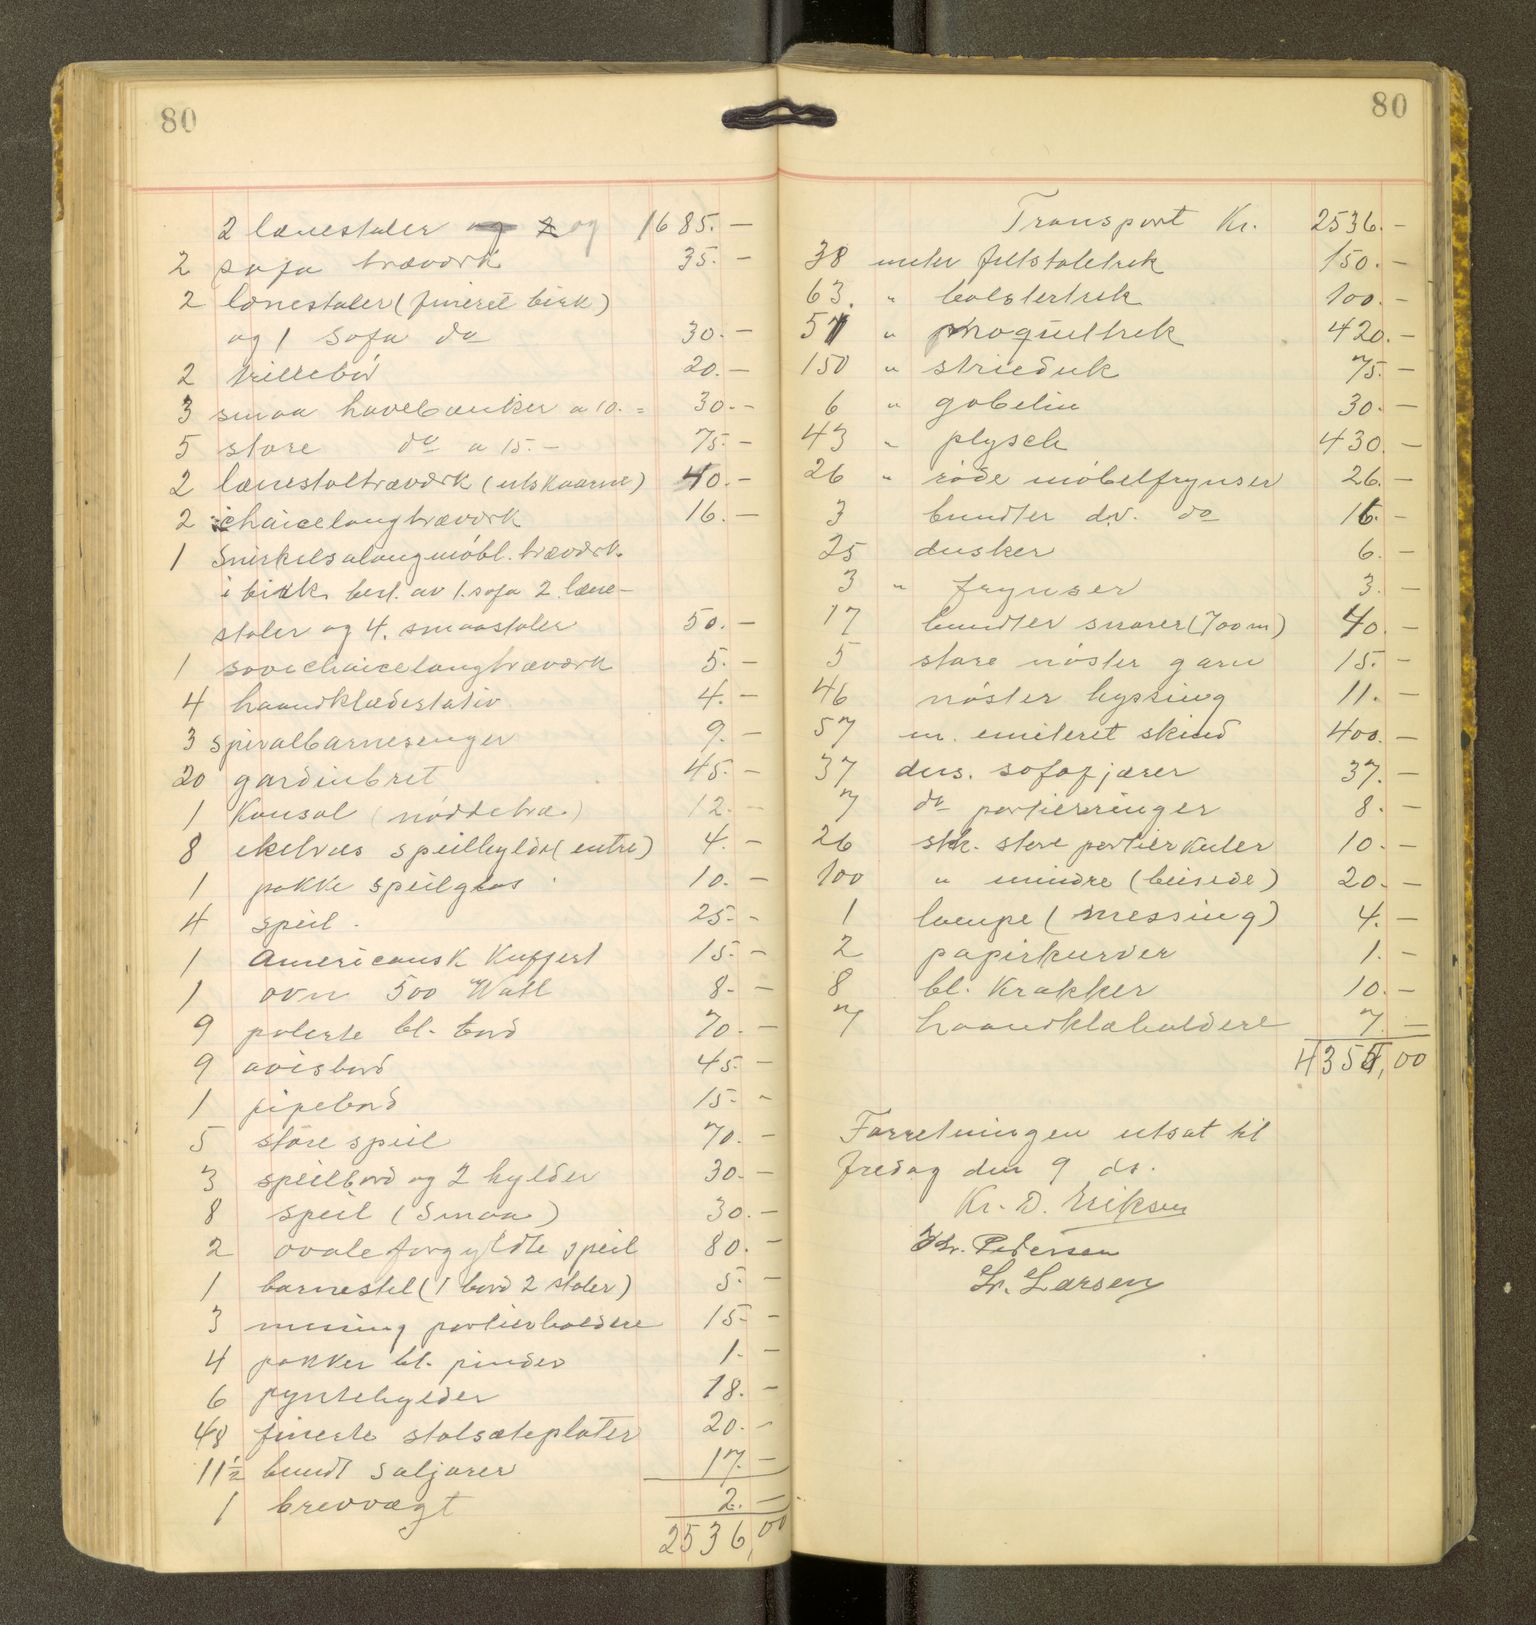 80
2 lænestoler og 1685.-
2 sofa træverk 35.-
2 lænestoler (fineret birk)
og 1 sofa do 30.-
2 trillebør 20.-
3 smaa havebænker a 10.- 30.-
5 store do a 15.- 75.-
2 lænestoltræverk (utskaarne) 40.-
2 chaicelongtræverk 16.-
1 Snirkelsalongmøbl. træverk
i birk best. av 1 sofa 2 læne-
stoler og 4 smaastoler 50.-
1 sovechaicelongtræverk 5.-
4 haandklædestativ 4.-
3 spiralbarnesenger 9.-
20 gardinbret 45.-
1 Konsol (nøddetræ) 12.-
8 eketræs speilhylder (entre) 4.-
1 pakke speilglas 10.-
4 speil. 25.-
1 Americansk Kuffert 15.-
1 ovn 500 Watt 8.-
9 polerte bl. bord 70.-
9 avisbord 45.-
1 pipebord 15.-
5 store speil 70.-
3 speilbord og 2 hylder 30.-
8 speil (Smaa) 30.-
2 ovale forgyldte speil 80.-
1 barnestel (1 bord 2 stoler) 5.-
3 messing portierholdere 15.-
4 pakker bl. pinder 1.-
6 pyntehylder 18.-
48 finerte stolsæteplater 20.-
11½ bundt saljorer 17.-
1 brevvægt 2.-
2536,00
80
Transport Kr. 2536.-
38 meter fletstoltrek 150.-
63. " bolstertrek 100.-
57 " moquettrek 420.-
150 " strieduk 75.-
6 " gobelin 30.-
43 " plysch 430.-
26 " røde møbelfrynser 26.-
3 bundter dv. do 16.-
25 dusker 6.-
3 " frynser 3.-
17 bundter snorer (700 m) 40.-
5 store nøster garn 15.-
46 nøster hyssing 11.-
57 m. emiteret skind 400.-
37 dus. sofafjærer 37.-
7 do portierringer 8.-
26 stk. store portierkuler 10.-
100 " mindre (beisede) 20.-
1 lampe (messing) 4.-
2 papirkurver 1.-
8 bl. Krakker 10.-
7 haandklæholdere 7.-
4355,00
Forretningen utsat til
fredag den 9 ds.
Kr. D. Eriksen
Chr. Petersen
Lr. Larsen